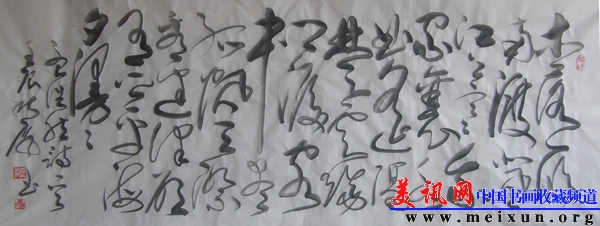 木落雁
南渡北风
江上寒我
家襄水
曲遥隔
楚云端
乡泪客
中尽
孤帆天际
看迷津欲
有问平海
夕漫漫
孟浩然诗
壬辰
书
美讯网
中国书画收藏频道
www.meixun.org